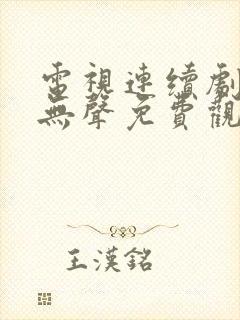 電視連續劇
無聲免費觀
王漢銘